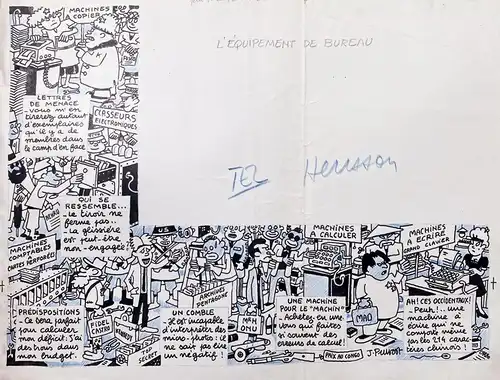 L'ÉQUIPEMENT DE BUREAU
MACHINES
COPIER
LETTRES
DE MENACE
- Vous m'en
tirerez autant
d'exemplaires
qu'il y a de
membres dans
le camp d'en face
CLASSEURS
ÉLECTRONIQUES
QUI SE
RESSEMBLE...
- Le tiroir ne
ferme pas..
- La glissière
est peut-être
non-engagée
MACHINES
COMPTABLES
CARTES PERFORÉES
PRÉDISPOSITIONS
- Ce doit être parfait
pour calculer
mon déficit. J'ai
des trous dans
mon budget.
FIDEL
CASTRO
KENNEDY
TOP
SECRET
US
ARCHIVES
PENTAGONE
UN COMBLE
- Il est incapable
d'interpréter des
micro-photos : il
ne sait pas lire
un négatif !
MR H
ONU
MACHINES
A CALCULER
UNE MACHINE
POUR LE "MACHIN"
- Achetez en une,
vous qui faites
si souvent des
erreurs de calcul !
PAIX AU CONGO
MAO
MACHINES
A ÉCRIRE
GRAND CLAVIER
AH ! CES OCCIDENTAUX !
- Peuh !.. une
machine à
écrire qui ne
comporte même
pas les 214 carac-
tères chinois !
TEL